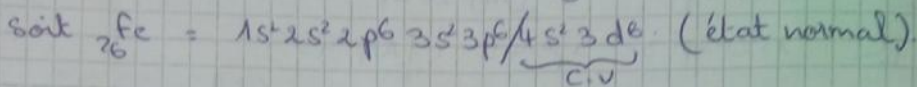 soit ₂₆Fe = 1s² 2s² 2p⁶ 3s² 3p⁶/4s² 3d⁶ (état normal).
C.V